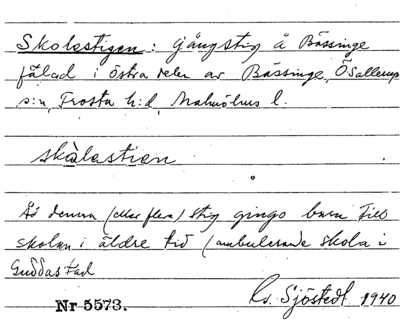 Skolastigen: Gångstig å Bässinge
fälad i östra delen av Bässinge, Ö Sallerup
s:n, Frosta h:d, Malmöhus l.
skòlastien
Å denna (eller flera) stig gingo barn till
skolan i äldre tid (ambulerande skola i
Guddastad
Nr 5573. G. Sjöstedt 1940